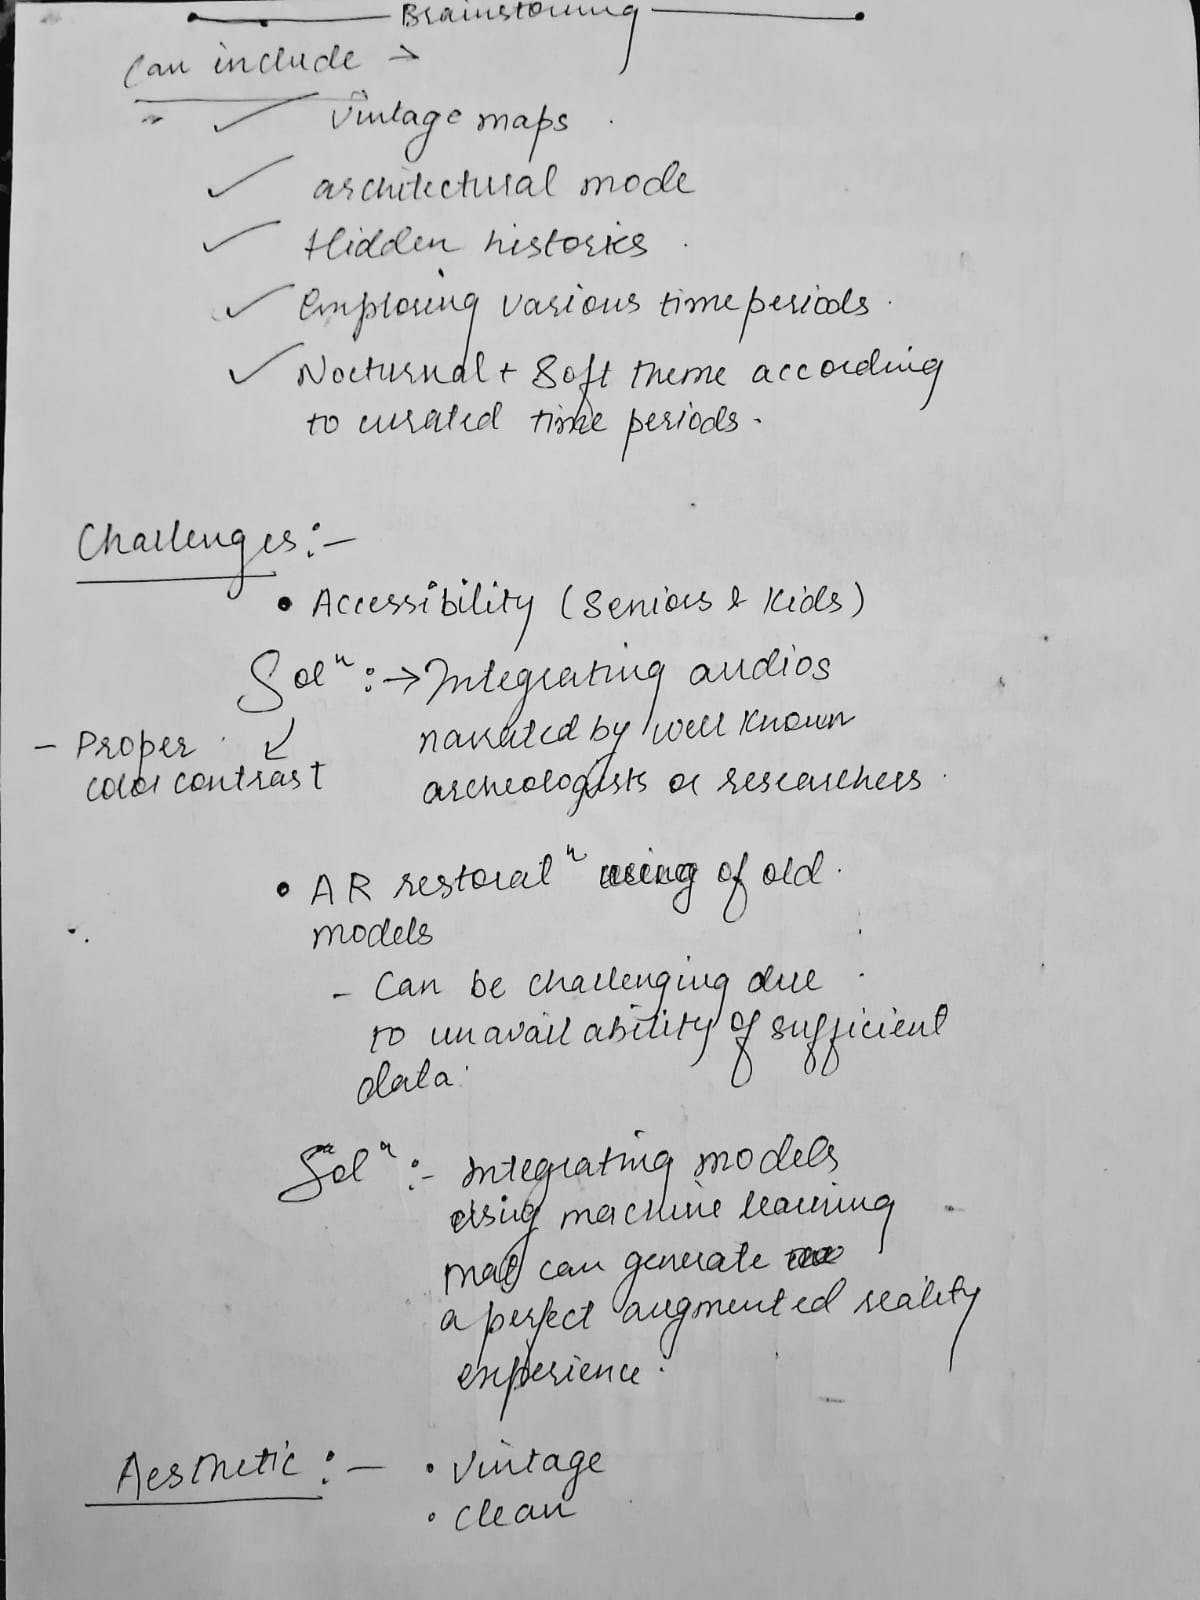 Brainstorming
Can include →
✓ Vintage maps
✓ architectural mode
✓ Hidden histories
✓ Exploring various time periods.
✓ Nocturnal + Soft theme according
to curated time periods.
Challenges:-
• Accessibility (Seniors & Kids)
Solⁿ :→ Integrating audios
narrated by well known
archeologists or researchers.
- Proper
color contrast
• AR restoratⁿ of old
models
- Can be challenging due
to unavailability of sufficient
data.
Solⁿ :- Integrating models
using machine learning
that can generate
a perfect augmented reality
experience.
Aesthetic :- • Vintage
• Clean